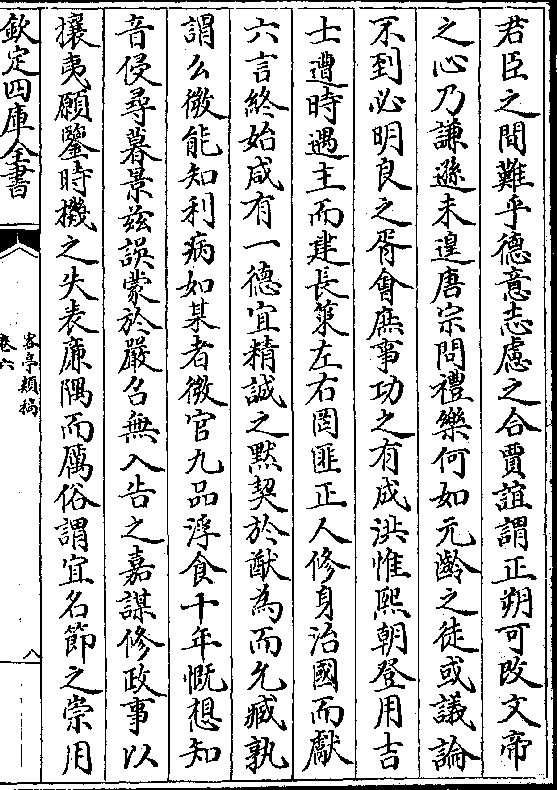 若臣之間難乎德意志慮之合賈誼謂正朔可改文帝
之心乃謙遜未遑唐宗問禮樂何如元齡之徒或議論
不到必明良之胥會庶事功之有成洪惟熙朝登用吉
士遭時遇主而建長策左右罔匪正人修身治國而獻
六言終始咸有一德宜精誠之黙契於猷為而允臧孰
謂么微能知利病如某者微官九品浮食十年慨想知
音侵尋暮景兹誤蒙於嚴召無入告之嘉謀修政事以
攘夷願鑒時機之失表廉隅而厲俗謂宜名節之崇用
欽定四庫全書
客亭類稿
卷六
八